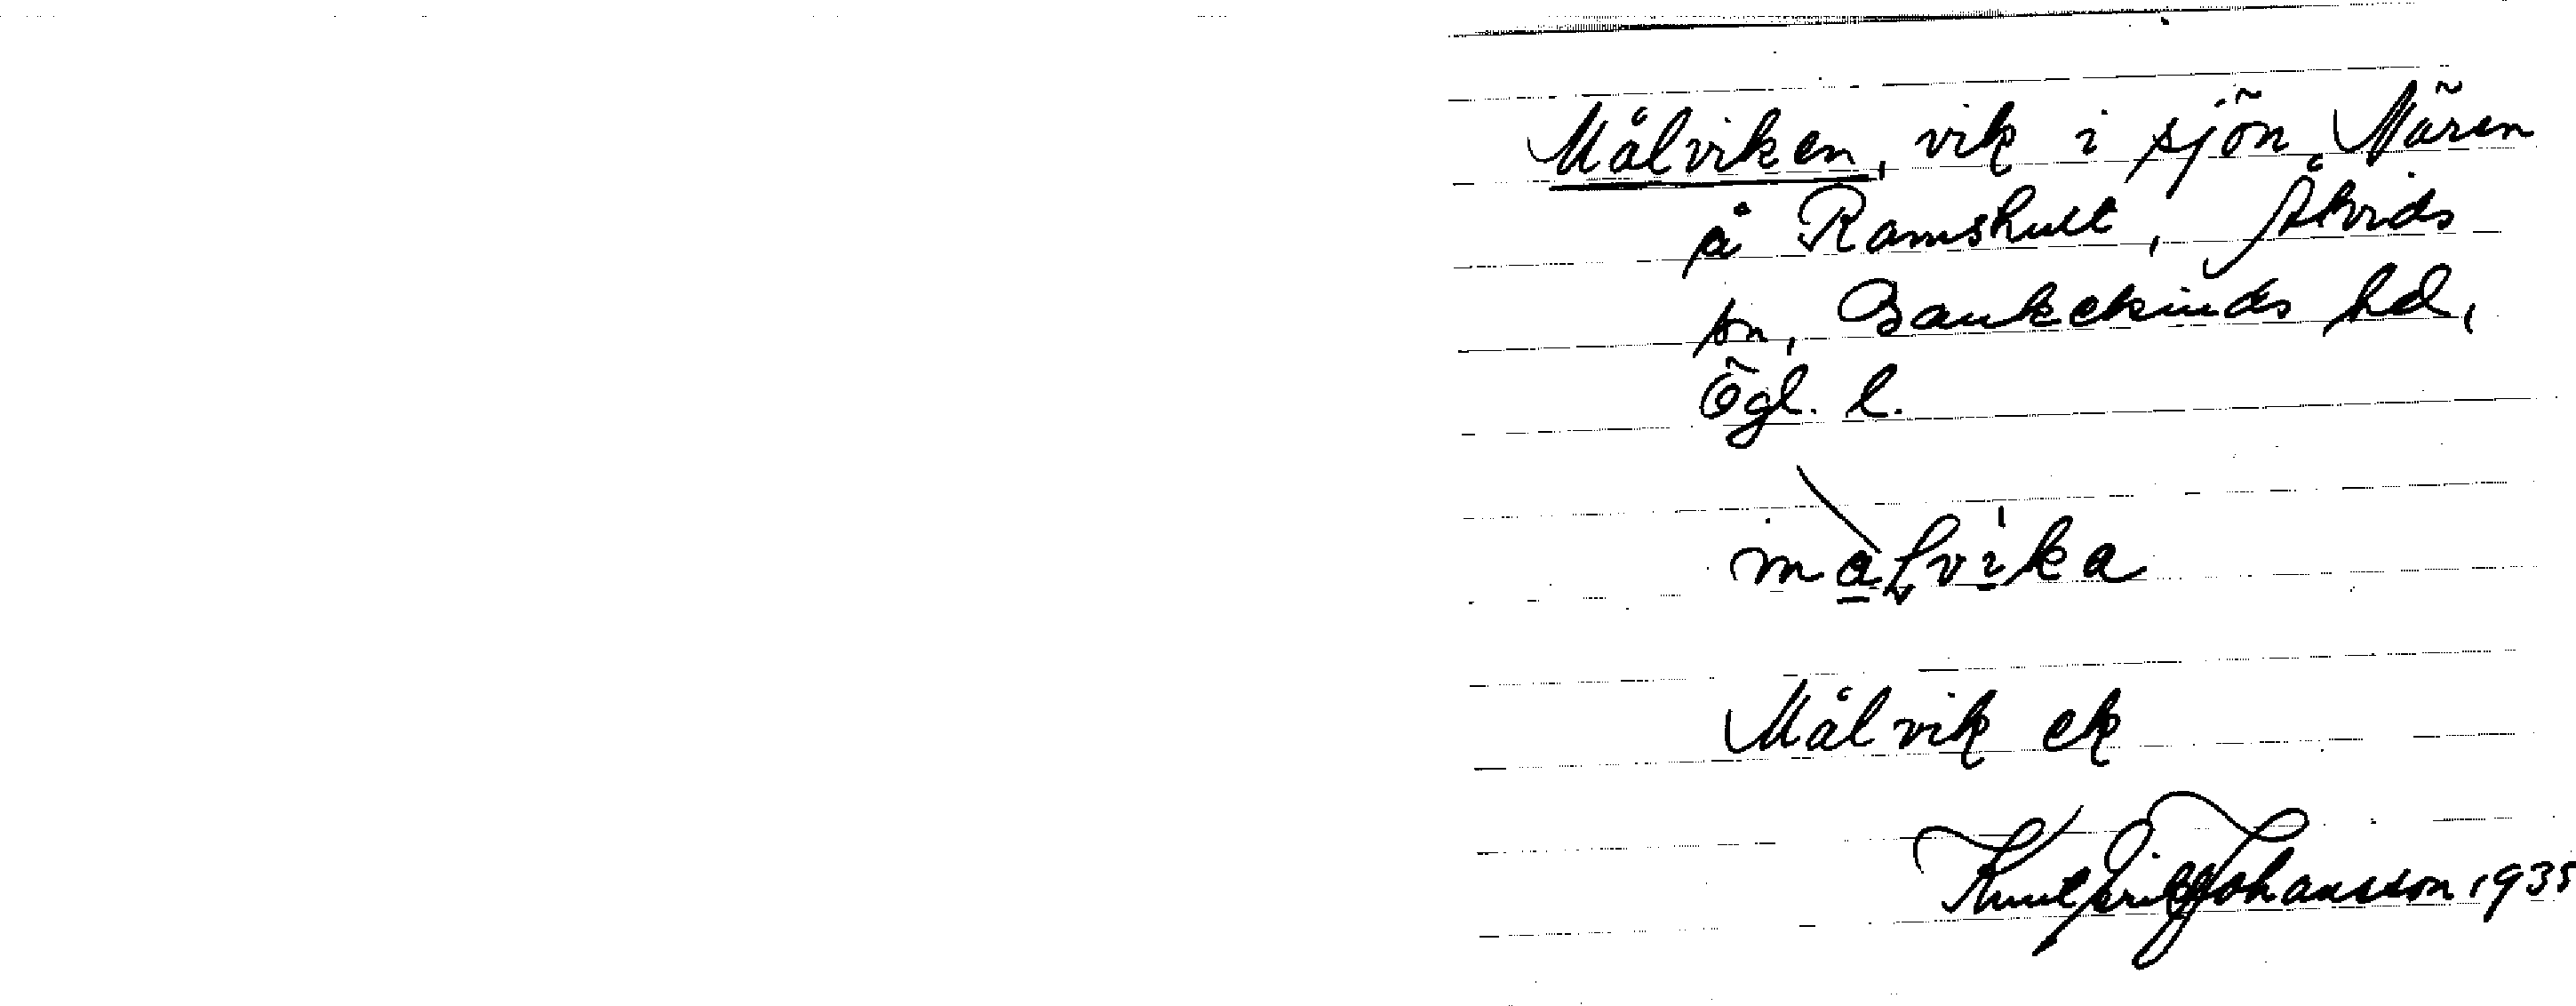 Målviken, vik i sjön Nären
på Ramshult, Åtvids
sn, Bankekinds hd,
Ögl. l.
målvika
Målvik ek
Knut Erik Johansson 1935